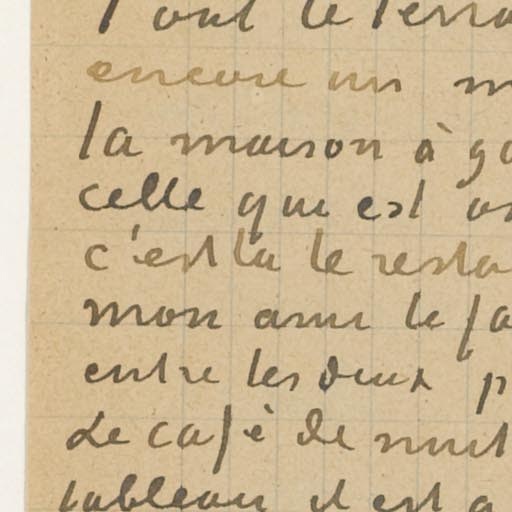 Tout le terra
encore un m
la maison à ga
celle qui est o
c'est là le resta
mon ami le fa
entre les deux p
Le café de nuit
tableau il est a